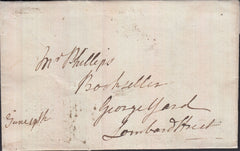 Mr Phillips
Bookseller
George Yard
Lombard Street
June 19th